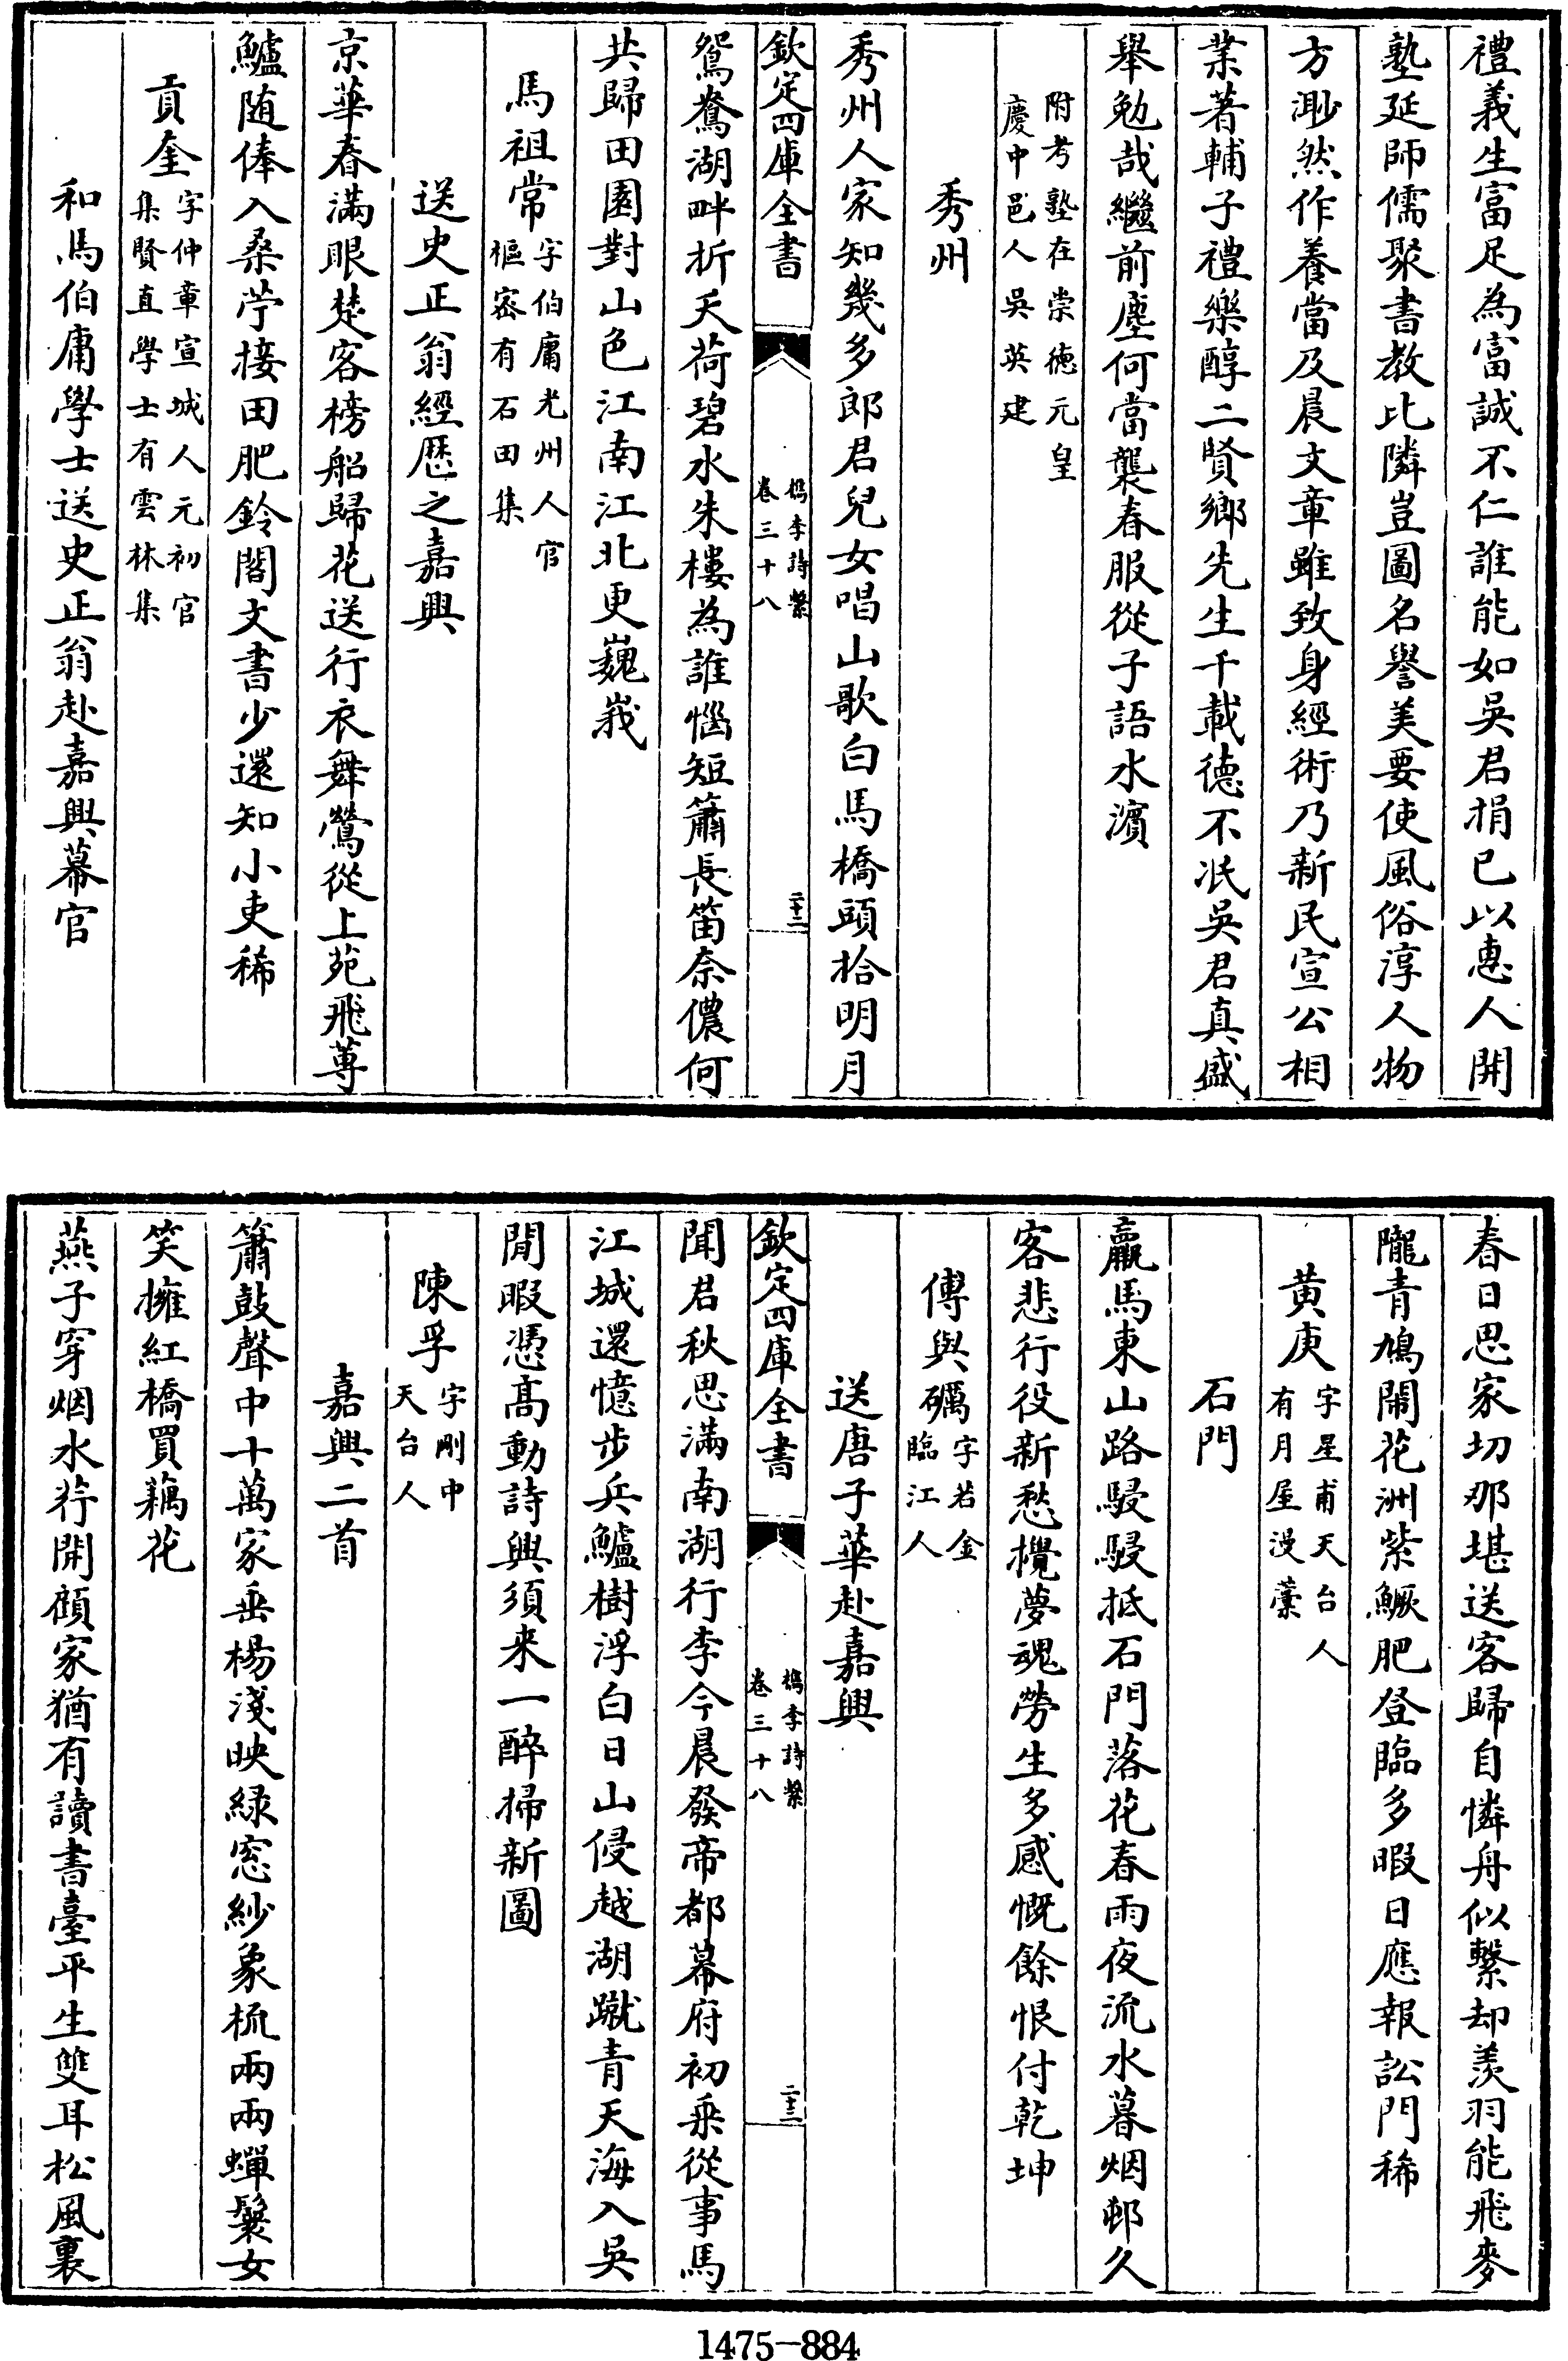 禮義生富足為富誠不仁誰能如吳君捐已以惠人開
塾延師儒聚書教比隣豈圖名譽美要使風俗淳人物
方渺然作養當及晨文章雖致身經術乃新民宣公相
業著輔子禮樂醇二賢鄉先生千載德不泯吳君真盛
舉勉哉繼前塵何當襲春服從子語水濱
附考塾在崇徳元皇
慶中邑人吳英建
秀州
秀州人家知幾多郎君兒女唱山歌白馬橋頭拾明月
欽定四庫全書
檇李詩繫
卷三十八
二十二
鴛鴦湖畔折天荷碧水朱樓為誰惱短簫長笛奈儂何
共歸田園對山色江南江北更巍峩
馬祖常
字伯庸光州人官
樞密有石田集
送史正翁經歴之嘉興
京華春滿眼楚客榜船歸花送行衣舞鶯從上苑飛蓴
鱸随俸入桑苧接田肥鈴閣文書少還知小吏稀
貢奎
字仲章宣城人元初官
集賢直學士有雲林集
和馬伯庸學士送史正翁赴嘉興幕官
春日思家切那堪送客歸自憐舟似繫却羡羽能飛麥
隴青鳩鬧花洲紫鱖肥登臨多暇日應報訟門稀
黄庚
字星甫天台人
有月屋漫藁
石門
羸馬東山路駸駸抵石門落花春雨夜流水暮烟邨久
客悲行役新愁攪夢魂勞生多感慨餘恨付乾坤
傅與礪
字若金
臨江人
送唐子華赴嘉興
欽定四庫全書
檇李詩繫
卷三十八
二十三
聞君秋思滿南湖行李今晨發帝都幕府初乗從事馬
江城還憶步兵鱸樹浮白日山侵越湖蹴青天海入吳
閒暇憑髙動詩興須来一醉掃新圖
陳孚
字剛中
天台人
嘉興二首
簫鼓聲中十萬家垂楊淺映緑窓紗象梳兩兩蟬鬢女
笑擁紅橋買藕花
燕子穿烟水荇開顧家猶有讀書臺平生雙耳松風裏
1475-884